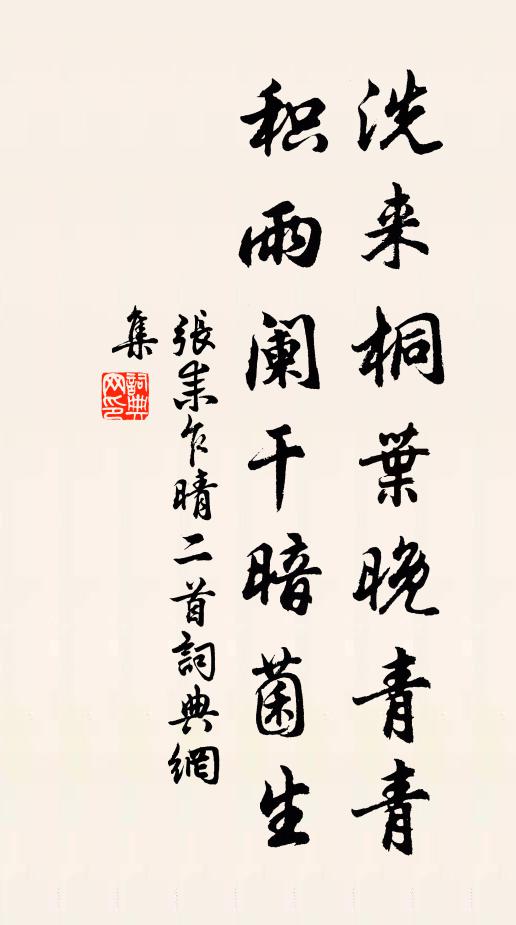 洗来桐葉晚青青
积雨阑干暗菌生
張耒乍晴二首詞典網
集
詞典
网印